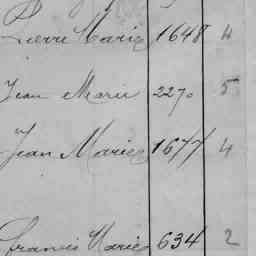 Pierre Marie 1648 4
Jean Marie 2270 5
Jean Marie 1677 4
francois Marie 634 2